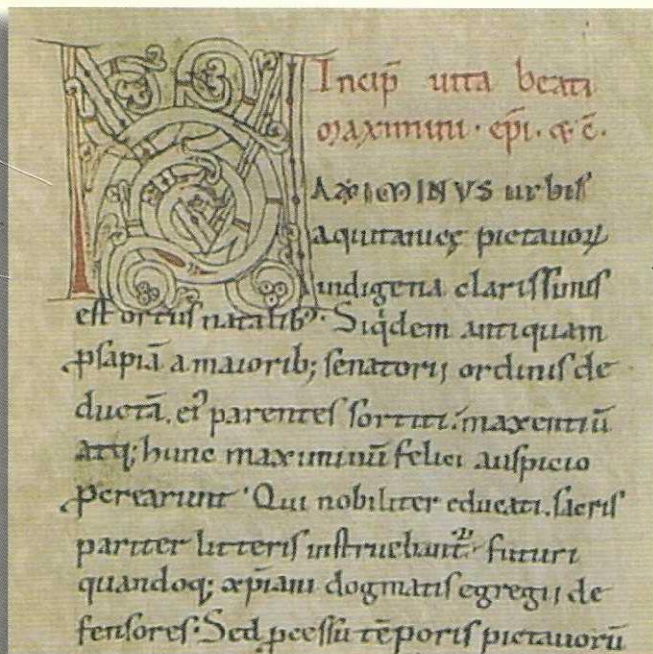 Incip̄ uita beati
Maximini · ep̄i · & c̄.
MAXIMINVS urbis
aquitanicę pictauoꝝ
indigena clarissimis
est ortus natalib᷒ · Siq́dem antiquam
ꝓsapiā a maiorib; senatorij ordinis de
ductā. ei᷒ parentes sortiti. maxentiū
atq; hunc maximinū felici auspicio
ꝓcrearunt · Qui nobiliter educati. sacris
pariter litteris instruebant᷑. futuri
quandoq; xp̄iani dogmatis egregij de
fensores · Sed ꝓcessu tēporis pictauorū